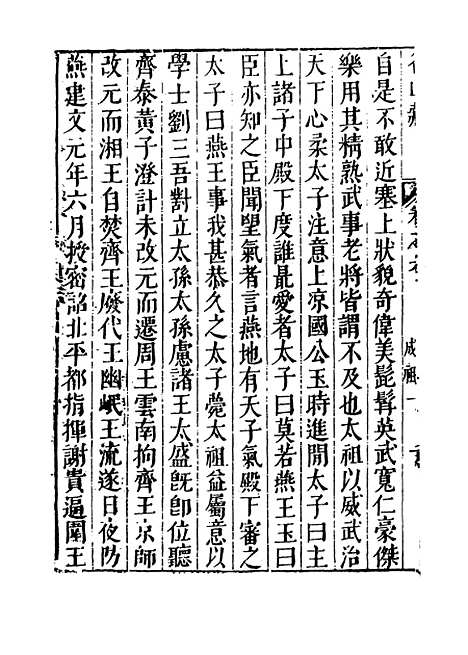 自是不敢近塞上狀貌奇偉美髭髯英武寬仁豪傑
樂用其精熟武事老將皆謂不及也太祖以威武治
天下心柔太子注意上凉國公玉時進開太子曰主
上諸子中殿下度誰最愛者太子曰莫若燕王玉曰
臣亦知之臣聞望氣者言燕地有天子氣殿下審之
太子曰燕王事我甚恭久之太子薨太祖益屬意以
學士劉三吾對立太孫太孫慮諸王太盛旣卽位聽
齊泰黃子澄計未改元而遷周王雲南拘齊王京師
改元而湘王自焚齊王廢代王幽岷王流遂日夜防
燕建文元年六月授密詔北平都指揮謝貴逼圍王